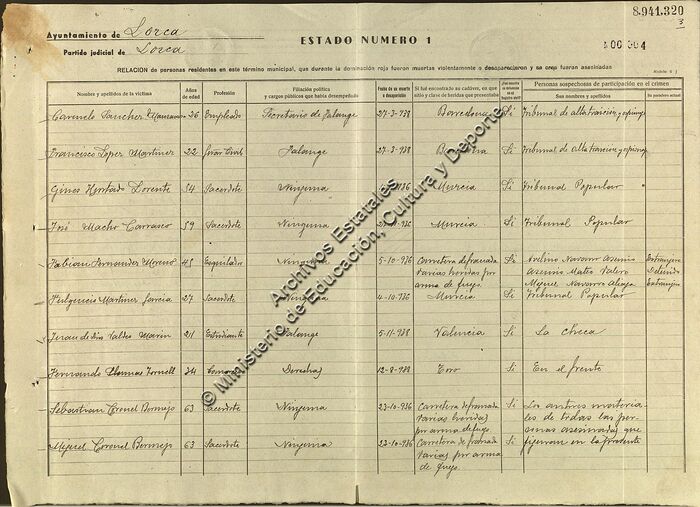 8.941.320
3
Ayuntamiento de Lorca
Partido judicial de Lorca
ESTADO NUMERO 1
RELACION de personas residentes en este término municipal, que durante la dominación roja fueron muertas violentamente o desaparecieron y se cree fueron asesinadas
Nombre y apellidos de la víctima
Años de edad
Profesión
Filiación política y cargos públicos que había desempeñado
Fecha de su muerte o desaparición
Si fué encontrado su cadáver, en qué sitio y clase de heridas que presentaba
Personas sospechosas de participación en el crimen
Sus nombres y apellidos
Su paradero actual
Carmelo Sanchez Manzanares 26 Empleado Secretario de Falange 27-3-938 Barcelona Si Tribunal de alta traicion y espionaje
Francisco Lopez Martinez 22 Falange 27-3-938 Si Tribunal de alta traicion y espionaje
Gines Hurtado Lorente 54 Sacerdote Ninguna 936 Murcia Si Tribunal Popular
José Macho Carrasco 59 Sacerdote Ninguna Murcia Si Tribunal Popular
Fabian Fernandez Moreno 45 Esquilador Ninguna 5-10-936 Carretera de Granada Si Avelino Navarro Asensio Extranjero
varias heridas por Asensio Mateo Valero Detenido
arma de fuego Miguel Navarro Aliaga Extranjero
Fulgencio Martinez Garcia 27 Sacerdote Ninguna 4-10-936 Murcia Si Tribunal Popular
Juan de Dios Valdes Marin 21 Estudiante Falange 5-11-938 Valencia Si La Checa
Fernando Tornell 34 Derechas 12-8-938 Toro Si En el frente
Sebastian Coronel Bermejo 63 Sacerdote Ninguna 23-10-936 Carretera de Granada Si Los autores materia-
varias heridas les de todas las per-
por arma de fuego sonas asesinadas que
Miguel Coronel Bermejo 63 Sacerdote Ninguna 23-10-936 Carretera de Granada Si figuran en la presente
varias por arma
de fuego
© Ministerio de Educación, Cultura y Deporte
Archivos Estatales